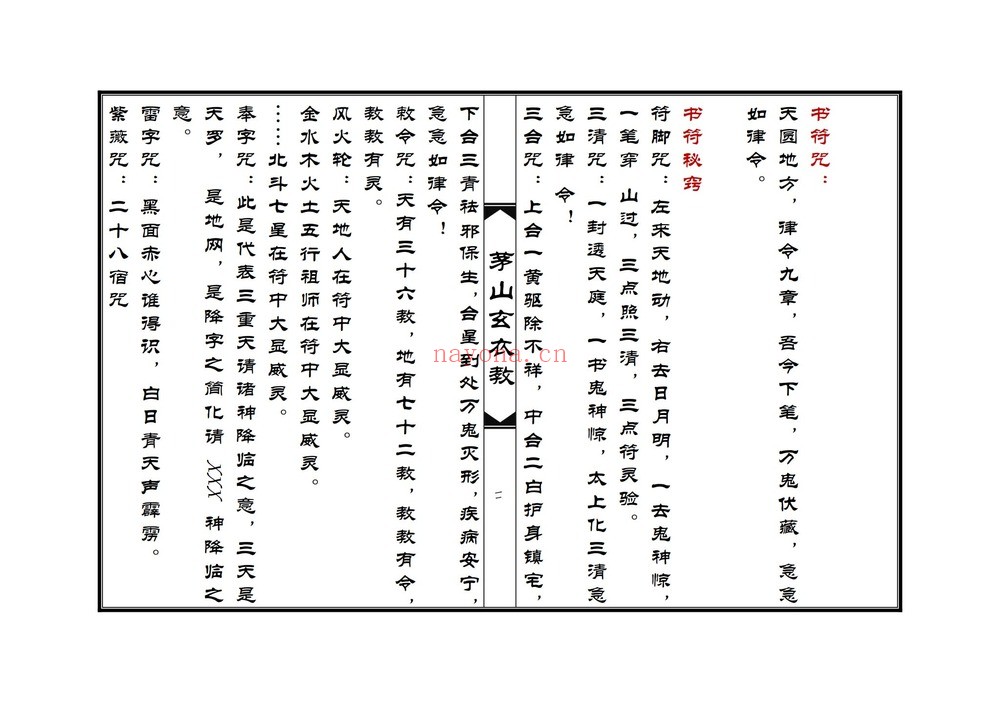 书符咒：
天圆地方，律令九章，吾今下笔，万鬼伏藏，急急
如律令。
书符秘窍
符脚咒：左来天地动，右去日月明，一去鬼神惊，
一笔穿 山过，三点照三清，三点符灵验。
三清咒：一封透天庭，一书鬼神惊，太上化三清急
急如律 令！
三台咒：上台一黄驱除不祥，中台二白护身镇宅，
茅山玄衣教
二
下台三青祛邪保生，台星到处万鬼灭形，疾病安宁，
急急如律令！
敕令咒：天有三十六教，地有七十二教，教教有令，
教教有灵。
风火轮：天地人在符中大显威灵。
金水木火土五行祖师在符中大显威灵。
……北斗七星在符中大显威灵。
奉字咒：此是代表三重天请诸神降临之意，三天是
天罗， 是地网，是降字之简化请 XXX 神降临之
意。
雷字咒：黑面赤心谁得识，白日青天声霹雳。
紫薇咒：二十八宿咒
nayona.cn